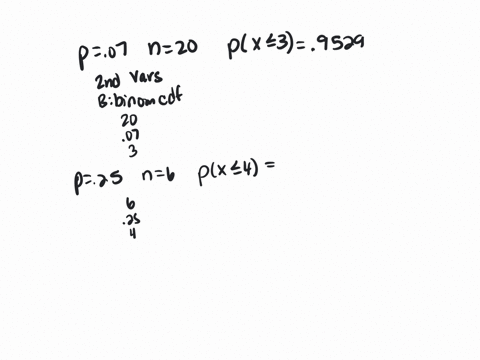 p=.07 n=20 p(x≤3)=.9529
2nd Vars
B:binomcdf
20
.07
3
p=.25 n=6 p(x≤4)=
6
.25
4